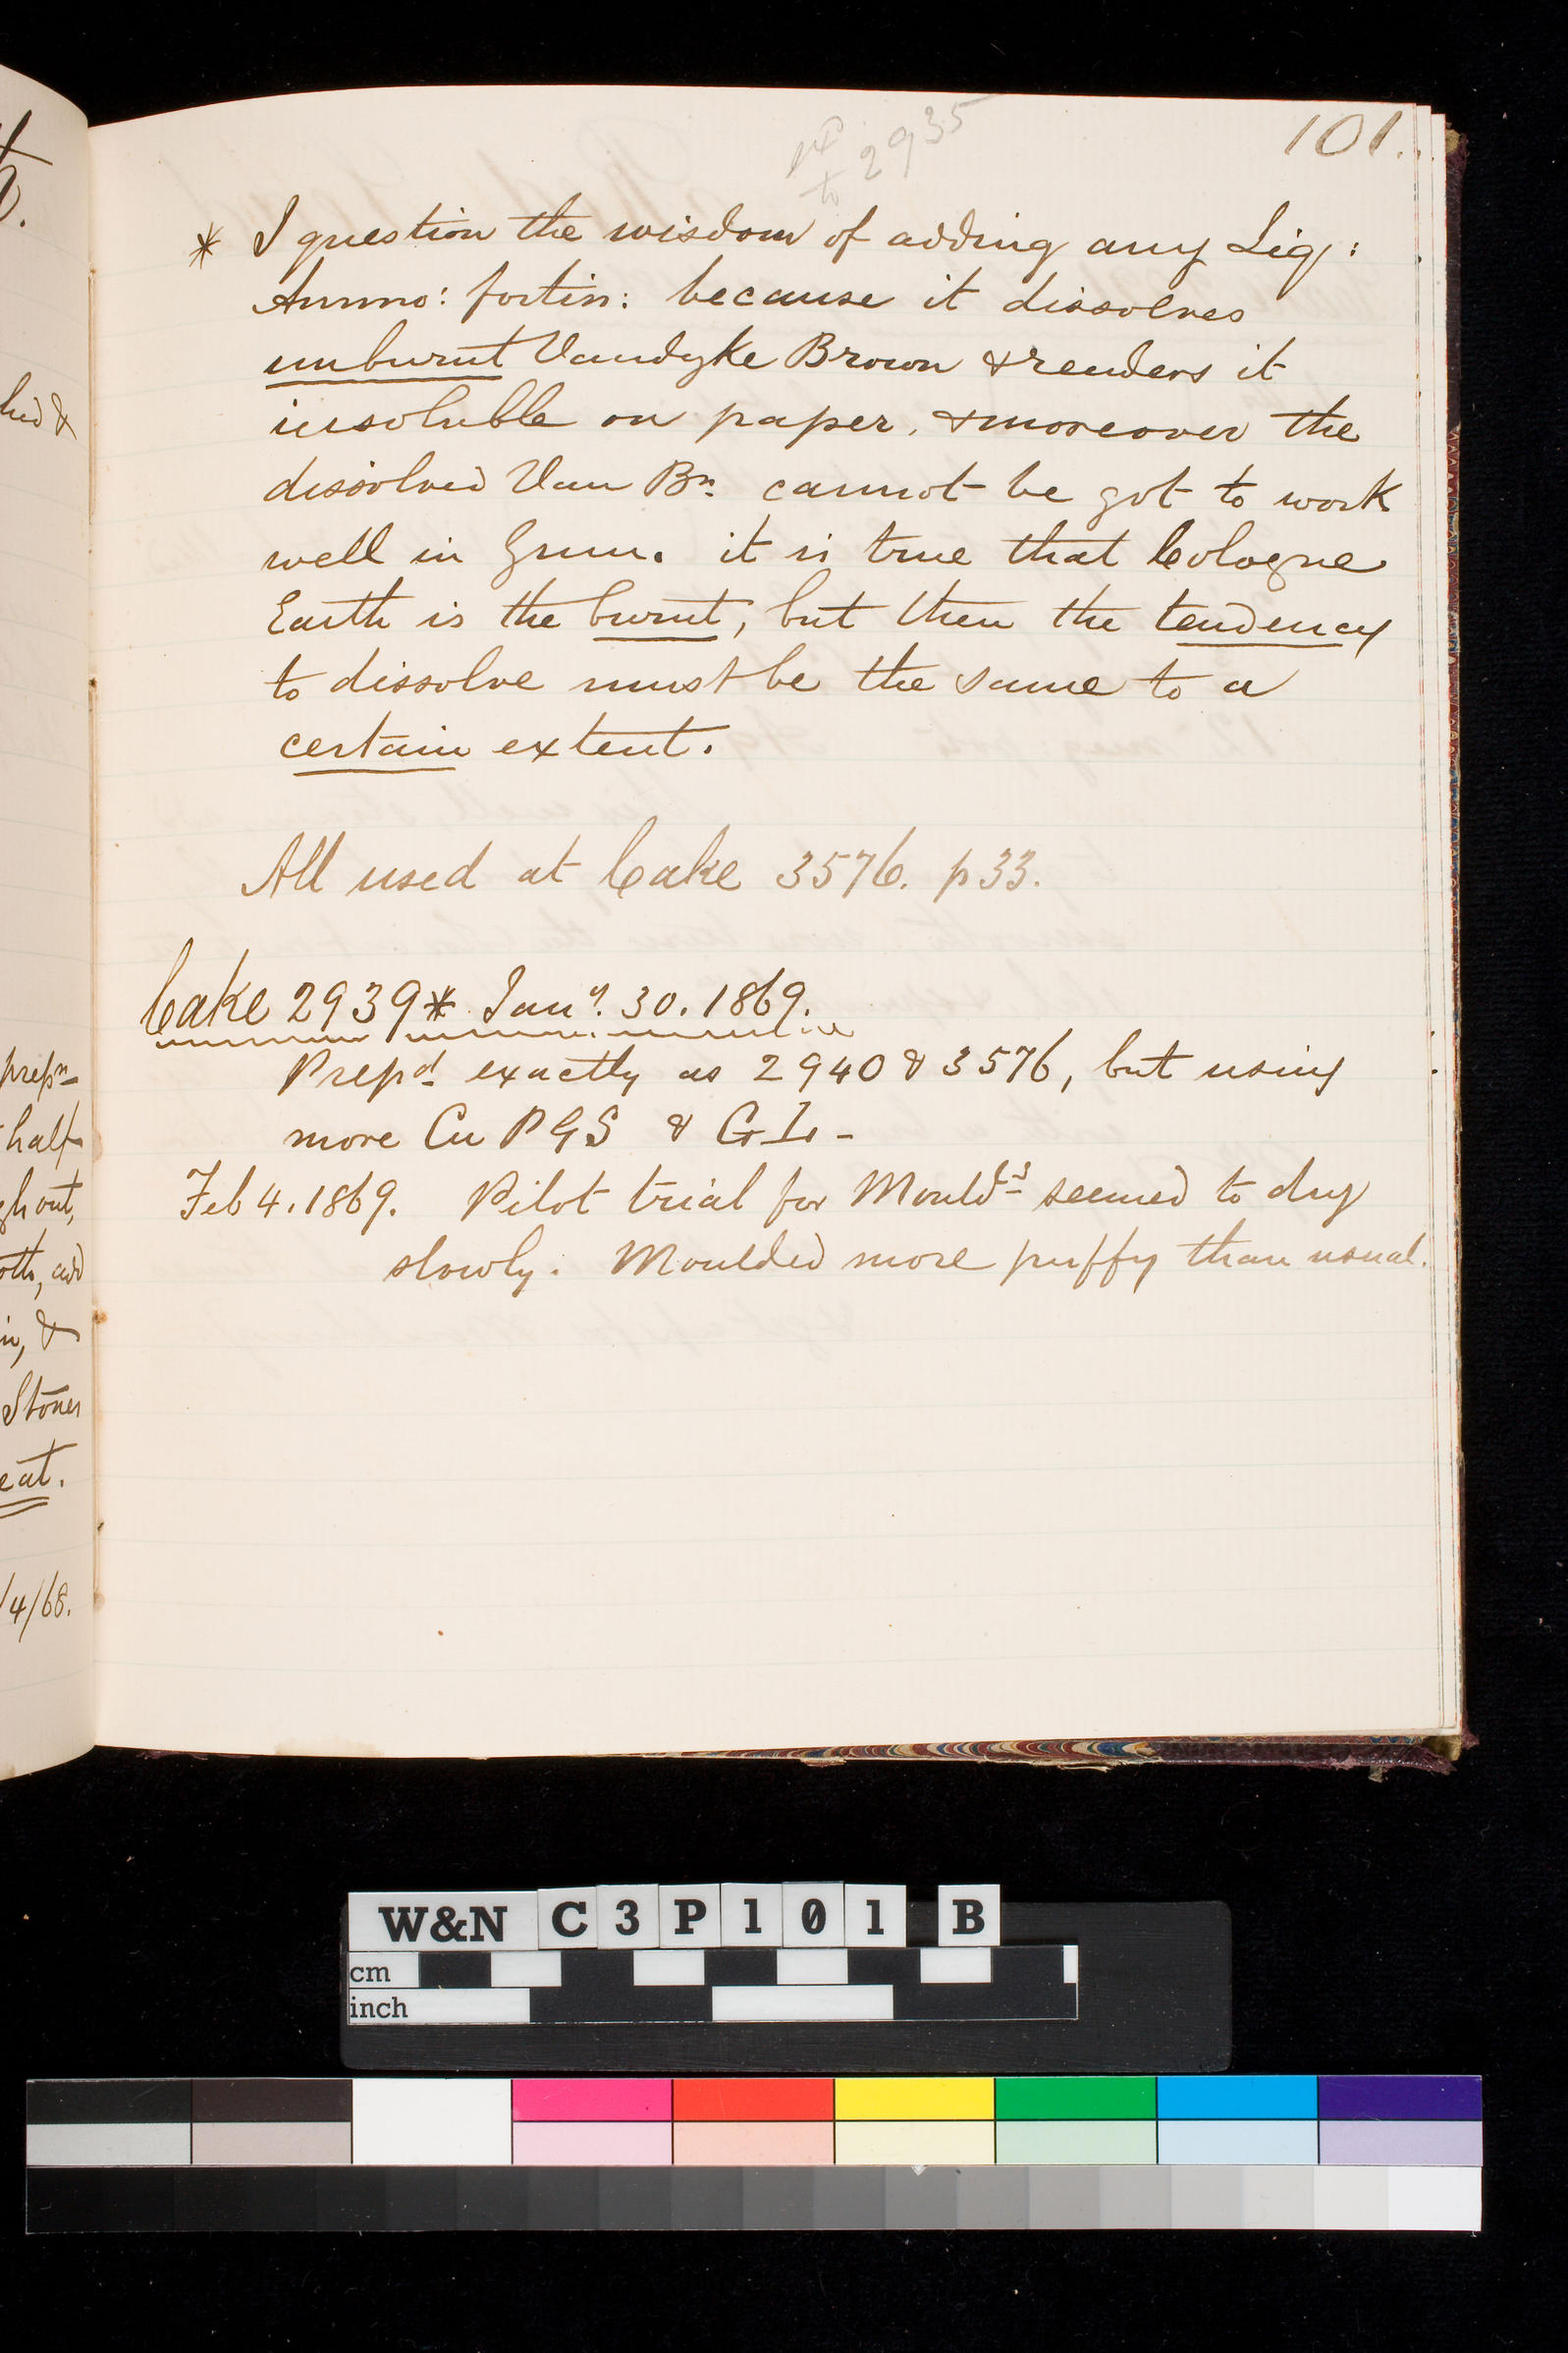 101.
to 2935
* I question the wisdom of adding any Liq:
Ammo: fortis: because it dissolves
unburnt Vandyke Brown & renders it
insoluble on paper, & moreover the
dissolved Van Brn. cannot be got to work
well in Gum. it is true that Cologne
Earth is the burnt, but then the tendency
to dissolve must be the same to a
certain extent.
All used at Cake 3576. p 33.
Cake 2939* Jany. 30. 1869.
Prepd. exactly as 2940 & 3576, but using
more Cu P G S & G I -
Feb 4. 1869. Pilot trial for Mouldrs seemed to dry
slowly. Moulded more puffy than usual.
hed &
prepn
half
gh out,
oth, add
in, &
Stones
eat.
/4/68.
W&N C3P101 B
cm
inch